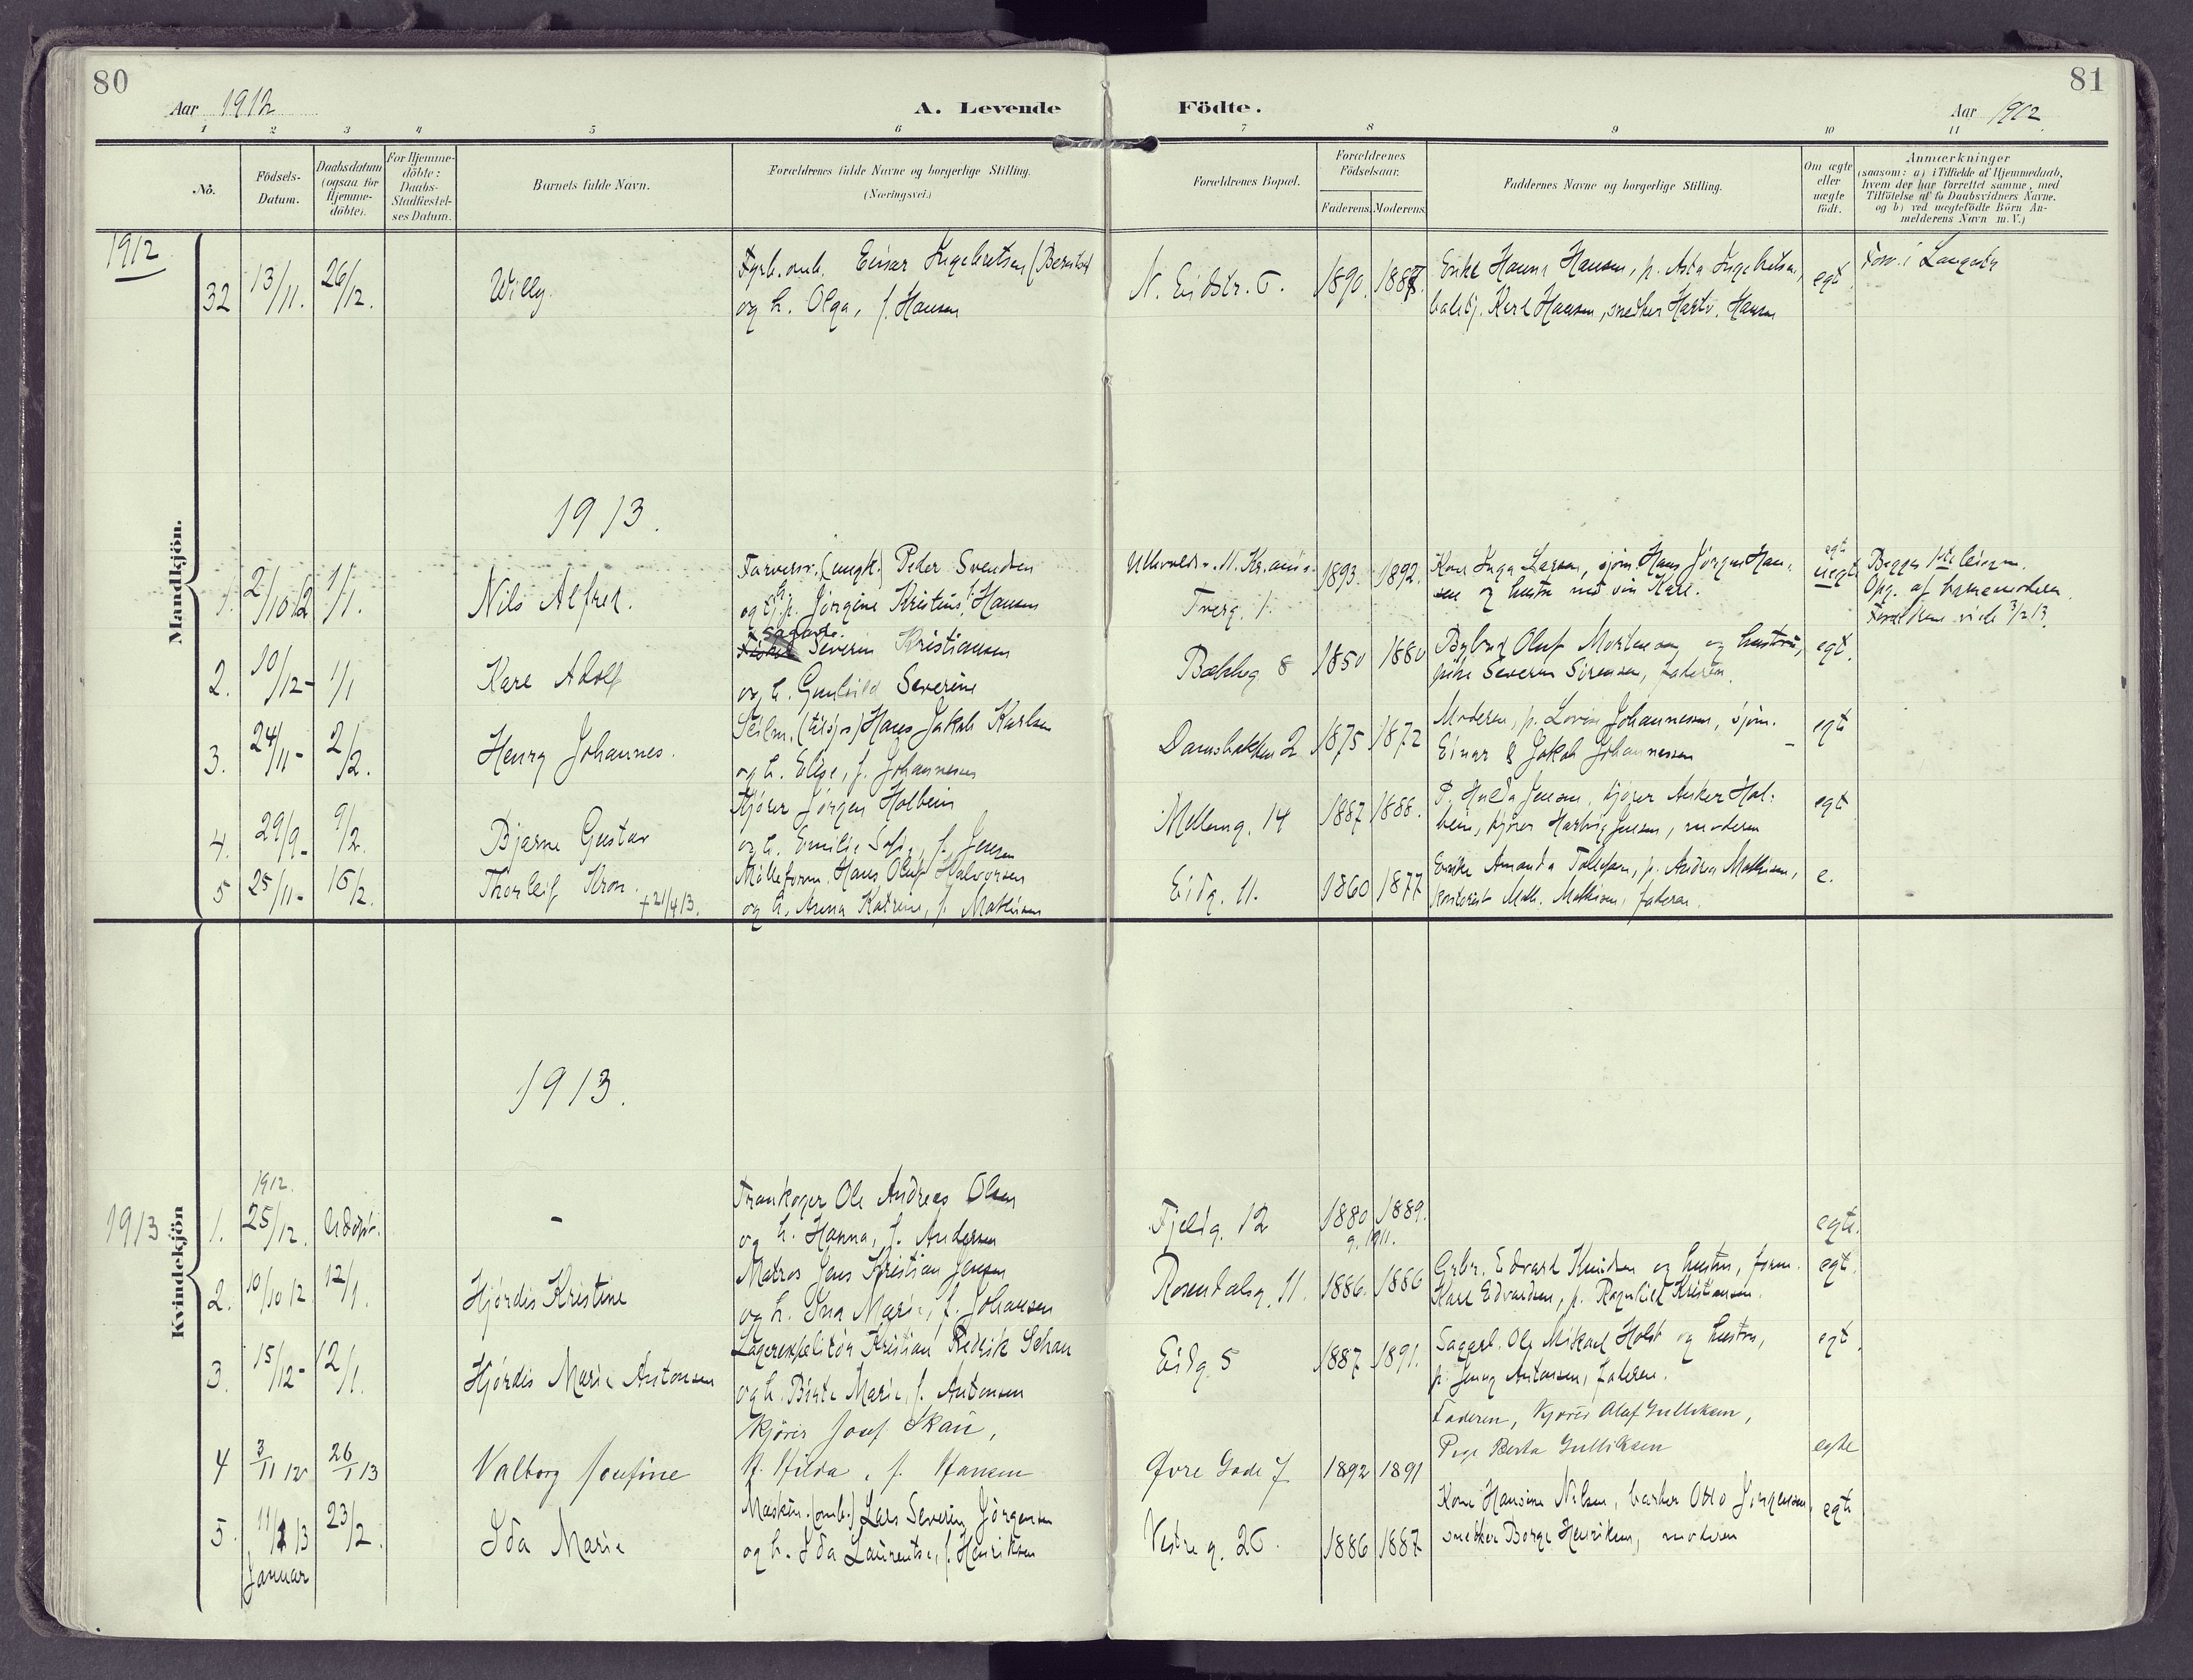 80
Aar 1912
A. Levende Födte.
Aar 1912
81
1 2 3 4 5 6 7 8 9 10 11
No.
Födsels-Datum.
Daabsdatum (ogsaa for Hjemme-döbte).
For Hjemme-döbte: Daabs-Stadfæstel-ses Datum.
Barnets fulde Navn.
Forældrenes fulde Navne og borgerlige Stilling. (Næringsvei.)
Forældrenes Bopæl.
Forældrenes Födselsaar.
Faderens. Moderens.
Faddernes Navne og borgerlige Stilling.
Om ægte eller uægte födt.
Anmærkninger
(saasom: a) i Tilfælde af Hjemmedaab,
hvem der har forrettet samme, med
Tilföielse af to Daabsvidners Navne.
og b) ved uægtefödte Börn An-
melderens Navn m. V.)
Mandkjön.
1912
32 13/11. 26/12. Willy.
Fyrb. omb. Einar Ingebretsen
og h. Olga, f. Hansen
N. Eidstr. 6. 1890. 1887.
Enke Hanna Hansen, p. Asta Ingebretsen,
Karl Hansen, snedker Hartv. Hansen
egt.
1913.
1. 2/10 12 1/1. Nils Alfred.
Farversv. (ungk.) Peder Svendsen
og p. Jörgine Kristine Hansen
Ullevoldsv. 11. Kr.ania.
Tverg. 1.
1893. 1892.
Kone Inga Larsen, sjöm. Hans Jörgen Han-
sen og hustru
uegt
egte
Begges 1ste leierm.
Opg. af barnemoderen.
Foreldrene viede 3/2 13.
2. 10/12- 1/1 Kare Adolf
Severin Kristiansen
og h. Gunhild Severine
Bakkeg 8 1850 1880
Bybud Oluf Mortensen og hustru,
pike Severine Sörensen, faderen.
egt.
3. 24/11- 2/2. Henry Johannes.
Seilm. (tilsjös) Hans Jakob Karlsen
og h. Elise, f. Johannesen
Damsbakken 2 1875 1872
Moderen, p. Lovise Johannessen, sjöm.
Einar & Jakob Johannessen
egt
4. 29/9- 9/2. Bjarne Gustav
Kjörer Jörgen Holbein
og h. Emilie Sofie, f. Jensen
Mellemg. 14 1887 1888.
P. Hulda Jensen, kjörer Anker Hol-
bein, kjörer Hartvig Jensen, moderen
egt
5 25/11- 16/2. Thorleif Kron. + 21/4 13.
Mölleform. Hans Oluf Halvorsen
og h. Anna Katrine, f. Mathisen
Eidg. 11. 1860 1877
Enke Amanda Tollefsen, p. Andrea Mathisen,
kontorist Math. Mathisen, faderen.
e.
Kvindekjön
1913.
1913
1912.
1. 25/12. Udöpt. -
Trankoger Ole Andreas Olsen
og h. Hanna, f. Andersen
Fjeldg. 12 1880 1889.
g. 1911.
egte.
2. 10/10 12 12/1. Hjördis Kristine
Matros Jens Kristian Jensen
og h. Ina Marie, f. Johansen
Rosendalsg. 11. 1886. 1886
Grbr. Edvard Knudsen og hustru, form.
Karl Edvardsen, p. Ragnhild Kristiansen.
egt.
3. 15/12- 12/1. Hjördis Marie Antonsen
Lagerexpeditör Kristian Fredrik Schau
og h. Birte Marie, f. Antonsen
Eidg. 5 1887 1891.
Sagarb. Ole Mikael Holst og hustru,
p. Jenny Antonsen, faderen.
egt.
4 3/11 12 26/1 13 Valborg Josefine
Kjörer Josef Skau,
H. Hilda, f. Hansen
Øvre Gade 7 1892 1891
Faderen, Kjörer Olaf Gulliksen,
Pige Berta Gulliksen
egte
5. 11/1 13 23/2. Ida Marie
Januar
Maskin. (omb.) Lars Severin Jörgensen
og h. Ida Laurentse, f. Henriksen
Vestre g. 26. 1886 1887
Kone Hansine Nilsen, Otto Jörgensen,
snedker Borge Henriksen, moderen
egte